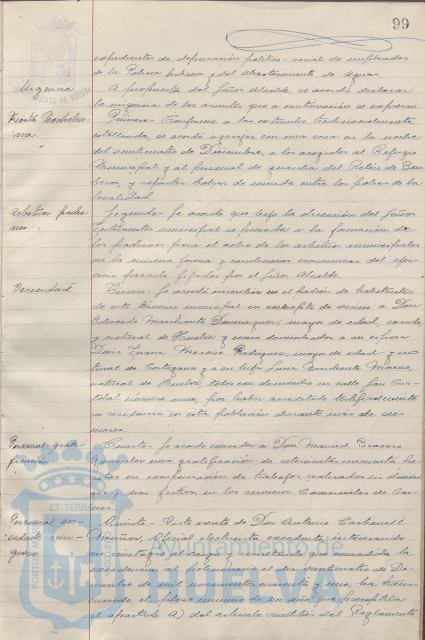 99
expedientes de depuración político-social de empleados
de la Policía Urbana y del Abastecimiento de Aguas.
Urgencia
A propuesta del Señor Alcalde, se acordó declarar
la urgencia de los asuntos que a continuación se expresan
Primero - Conforme a las costumbres tradicionalmente
establecidas, se acordó agasajar con una cena en la noche
del veinticuatro de Diciembre, a los acogidos al Refugio
Municipal y al personal de guardia del Retén de Bom
beros, y repartir bolsas de comida entre los pobres de la
localidad
Segundo - Se acordó que bajo la dirección del Señor
municipal se proceda a la formación de
los padrones para el cobro de los arbitrios municipales
en la misma forma y condiciones económicas del ejer
cicio pasado, fijados por el Señor Alcalde.
Vecindad
Tercero - Se acordó inscribir en el padrón de habitantes
de este término municipal en concepto de vecino a Don
Eduardo Marchante Dominguez, mayor de edad, casado
y natural de Huelva y como domiciliados a su esposa
Doña Juana Moreno Rodriguez, mayor de edad y na
tural de Cortegana y a su hija Luisa Marchante Moreno,
natural de Huelva, todos con domicilio en calle San Cris
tobal número uno, por haber acreditado
su residencia en esta población durante más de seis
meses.
Personal grati-
ficación
Cuarto - Se acordó conceder a Don Manuel Bracero
González una gratificación de setecientas cincuenta Pe
setas en compensación de trabajos realizados en domin
gos y días festivos en los servicios Comunales de
Personal ex-
cedente rein-
greso.
Quinto - Visto escrito de Don Antonio Carbonell
Muñoz, Oficial electricista excedente, interesando
su reintegro al cargo, y resultando que concedida la
excedencia al peticionario el día veinticuatro de Di
ciembre de mil novecientos cuarenta y uno, ha trans
currido el plazo mínimo de un año que preceptúa
el apartado A) del artículo veintitres del Reglamento
Ayuntamiento de
HUELVA